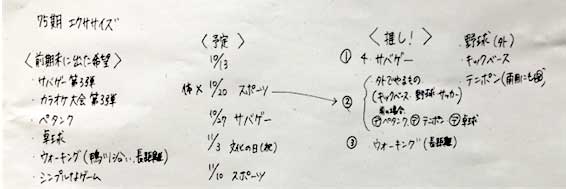 75期 エクササイズ
〈前期末に出た希望〉
・サバゲー第3弾
・カラオケ大会 第3弾
・ペタンク
・卓球
・ウォーキング(鴨川沿い、長距離)
・シンプルなゲーム
〈予定〉
10/13
体× 10/20 スポーツ
10/27 サバゲー
11/3 文化の日(祝)
11/10 スポーツ
〈推し!〉
① 4. サバゲー
・野球(外)
・キックベース
・テニポン(雨用にも)
② ・外でやるもの
(キックベース・野球・サッカー)
雨の場合
ペタンク テニポン 卓球
③ ウォーキング(長距離)